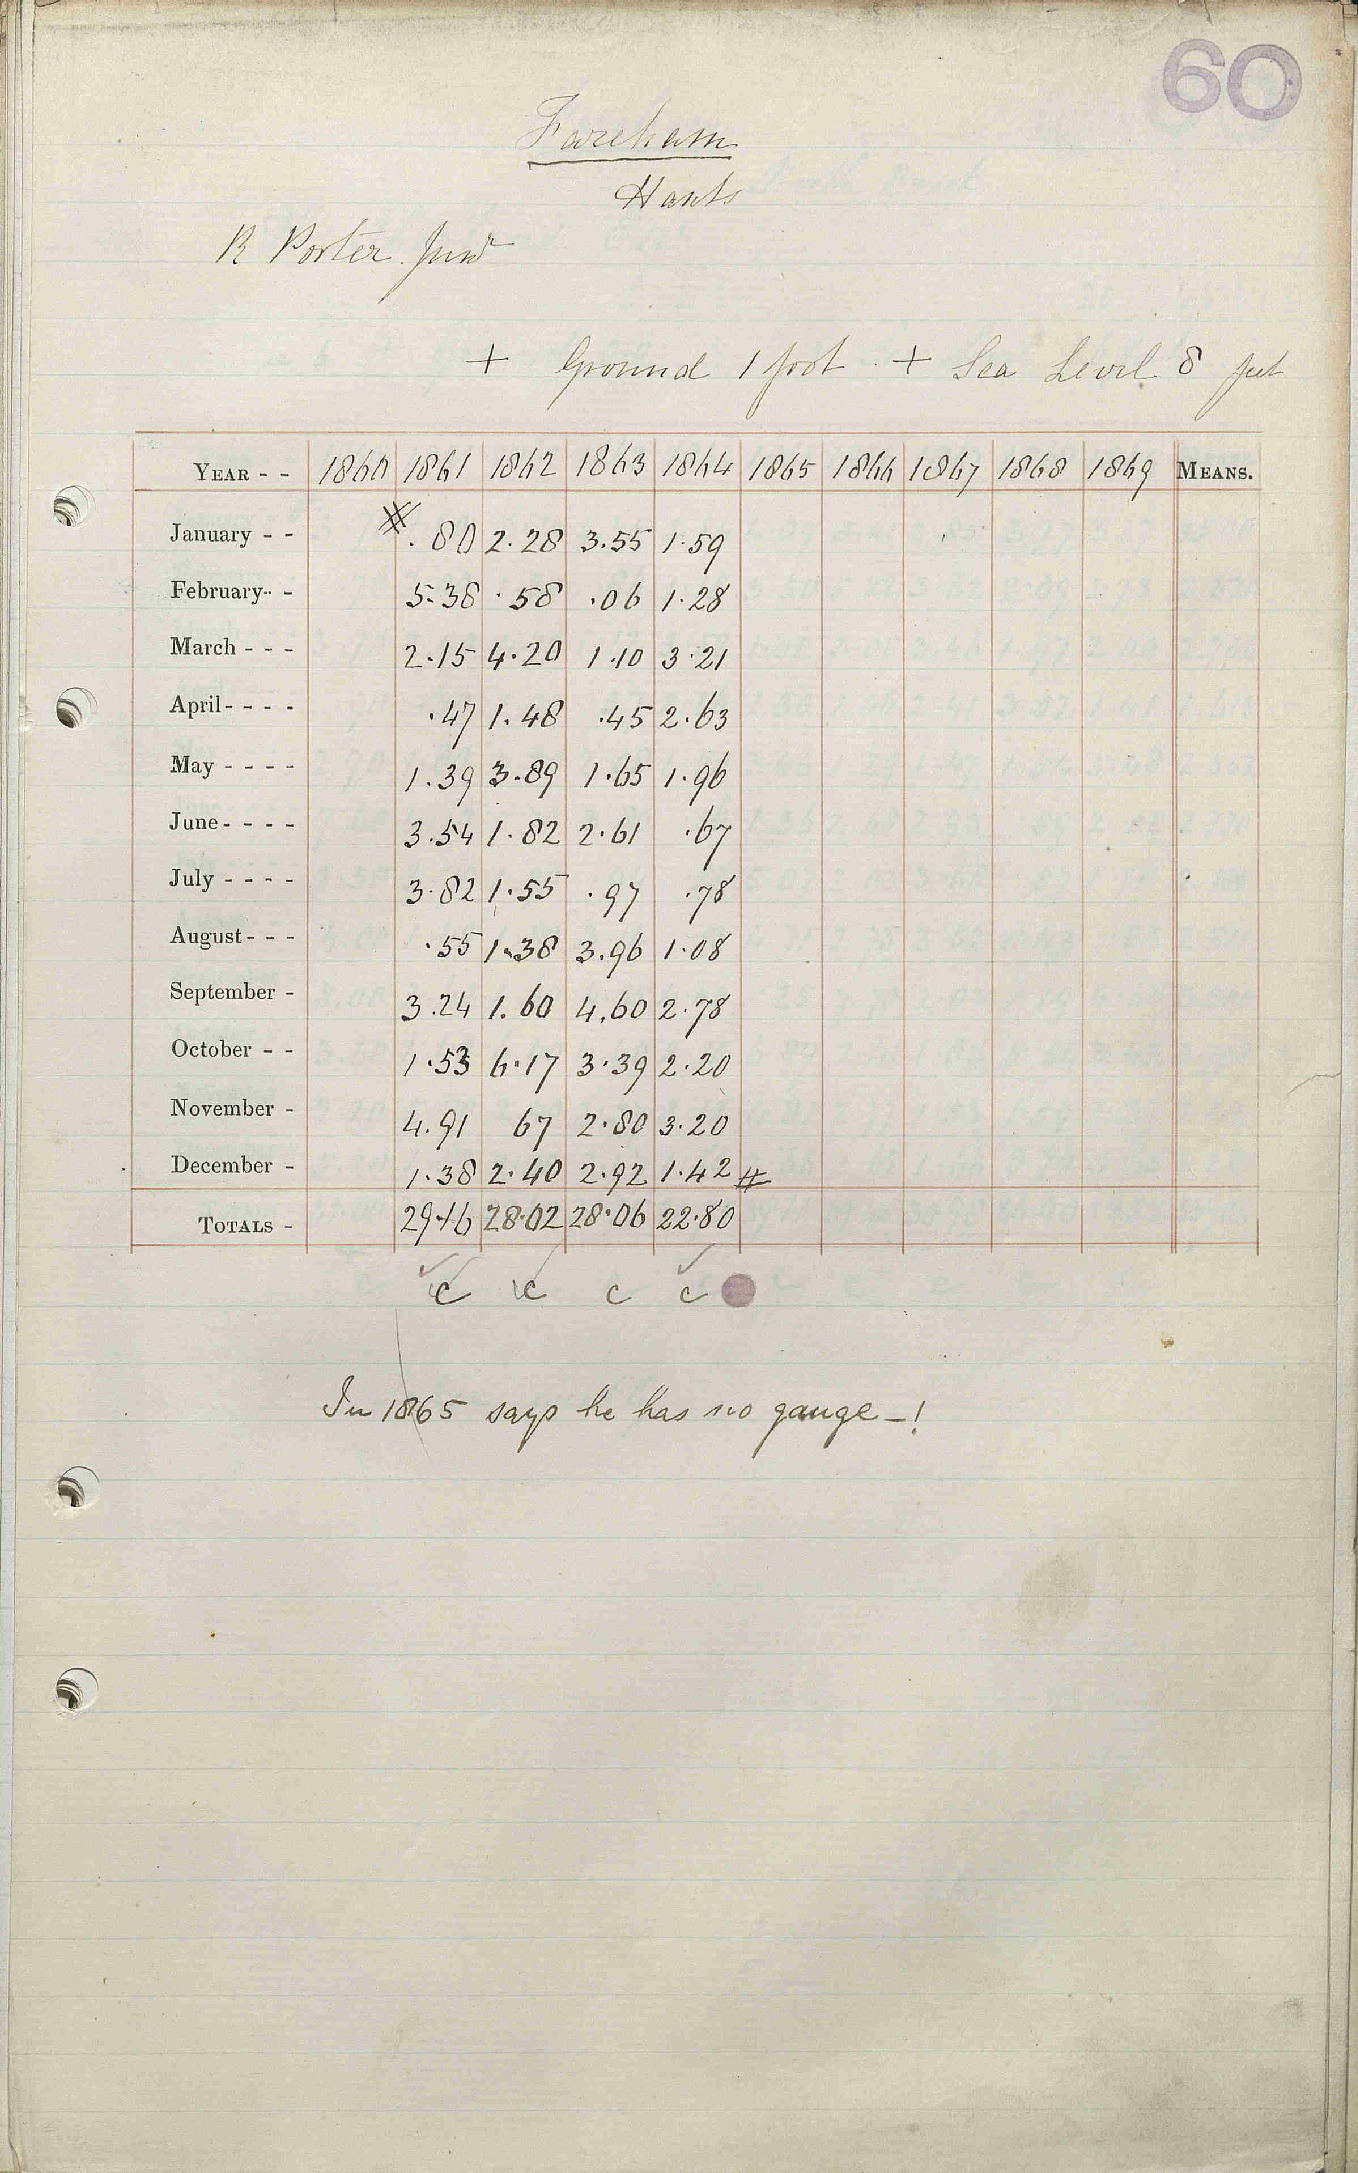 60
Fareham
Hants
R Porter Junr
+ Ground 1 foot + Sea Level 8 feet
YEAR - - 1860 1861 1862 1863 1864 1865 1866 1867 1868 1869 MEANS.
January - - # .80 2.28 3.55 1.59
February - - 5.38 .58 .06 1.28
March - - - 2.15 4.20 1.10 3.21
April - - - - .47 1.48 .45 2.63
May - - - - 1.39 3.89 1.65 1.96
June - - - - 3.54 1.82 2.61 .67
July - - - - 3.82 1.55 .97 .78
August - - - .55 1.38 3.96 1.08
September - 3.24 1.60 4.60 2.78
October - - 1.53 6.17 3.39 2.20
November - 4.91 67 2.80 3.20
December - 1.38 2.40 2.92 1.42 #
TOTALS - 29.16 28.02 28.06 22.80
c c c c
In 1865 says he has no gauge - !